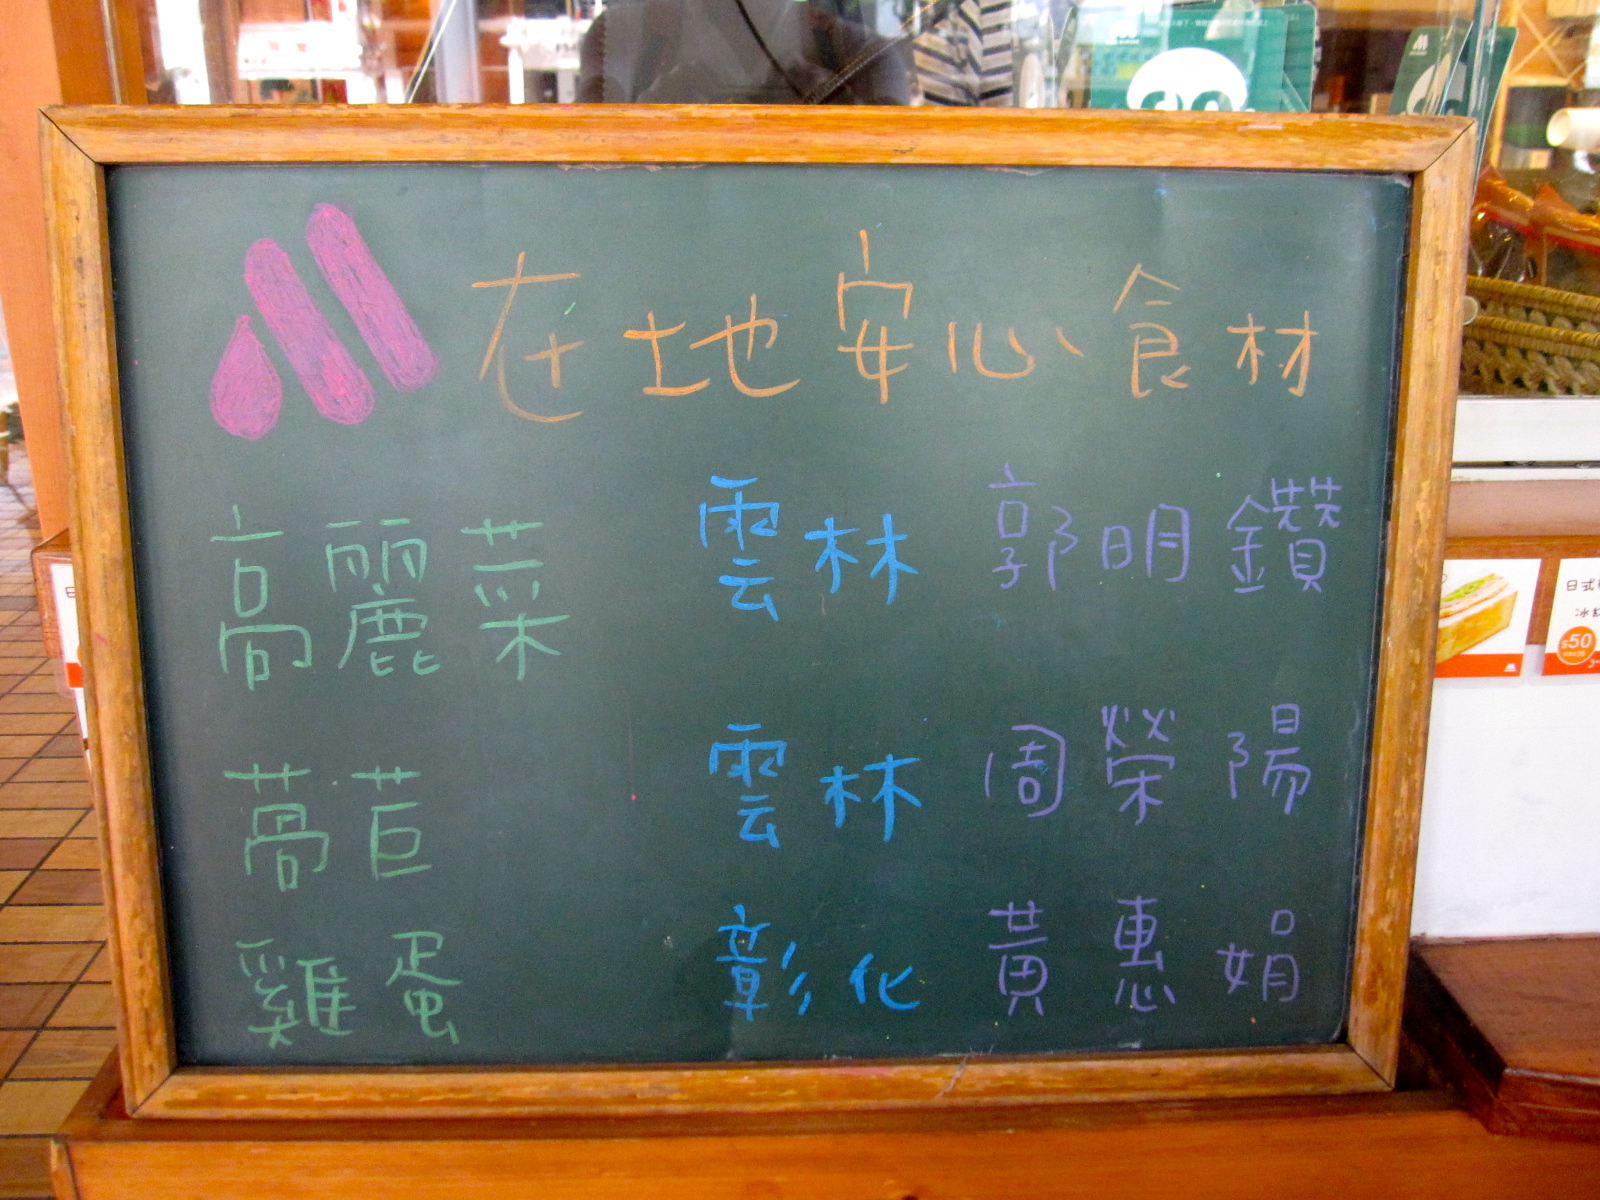 在地安心食材
高麗菜 雲林 郭明鑽
萵苣 雲林 周榮陽
雞蛋 彰化 黃惠娟
日式
$50